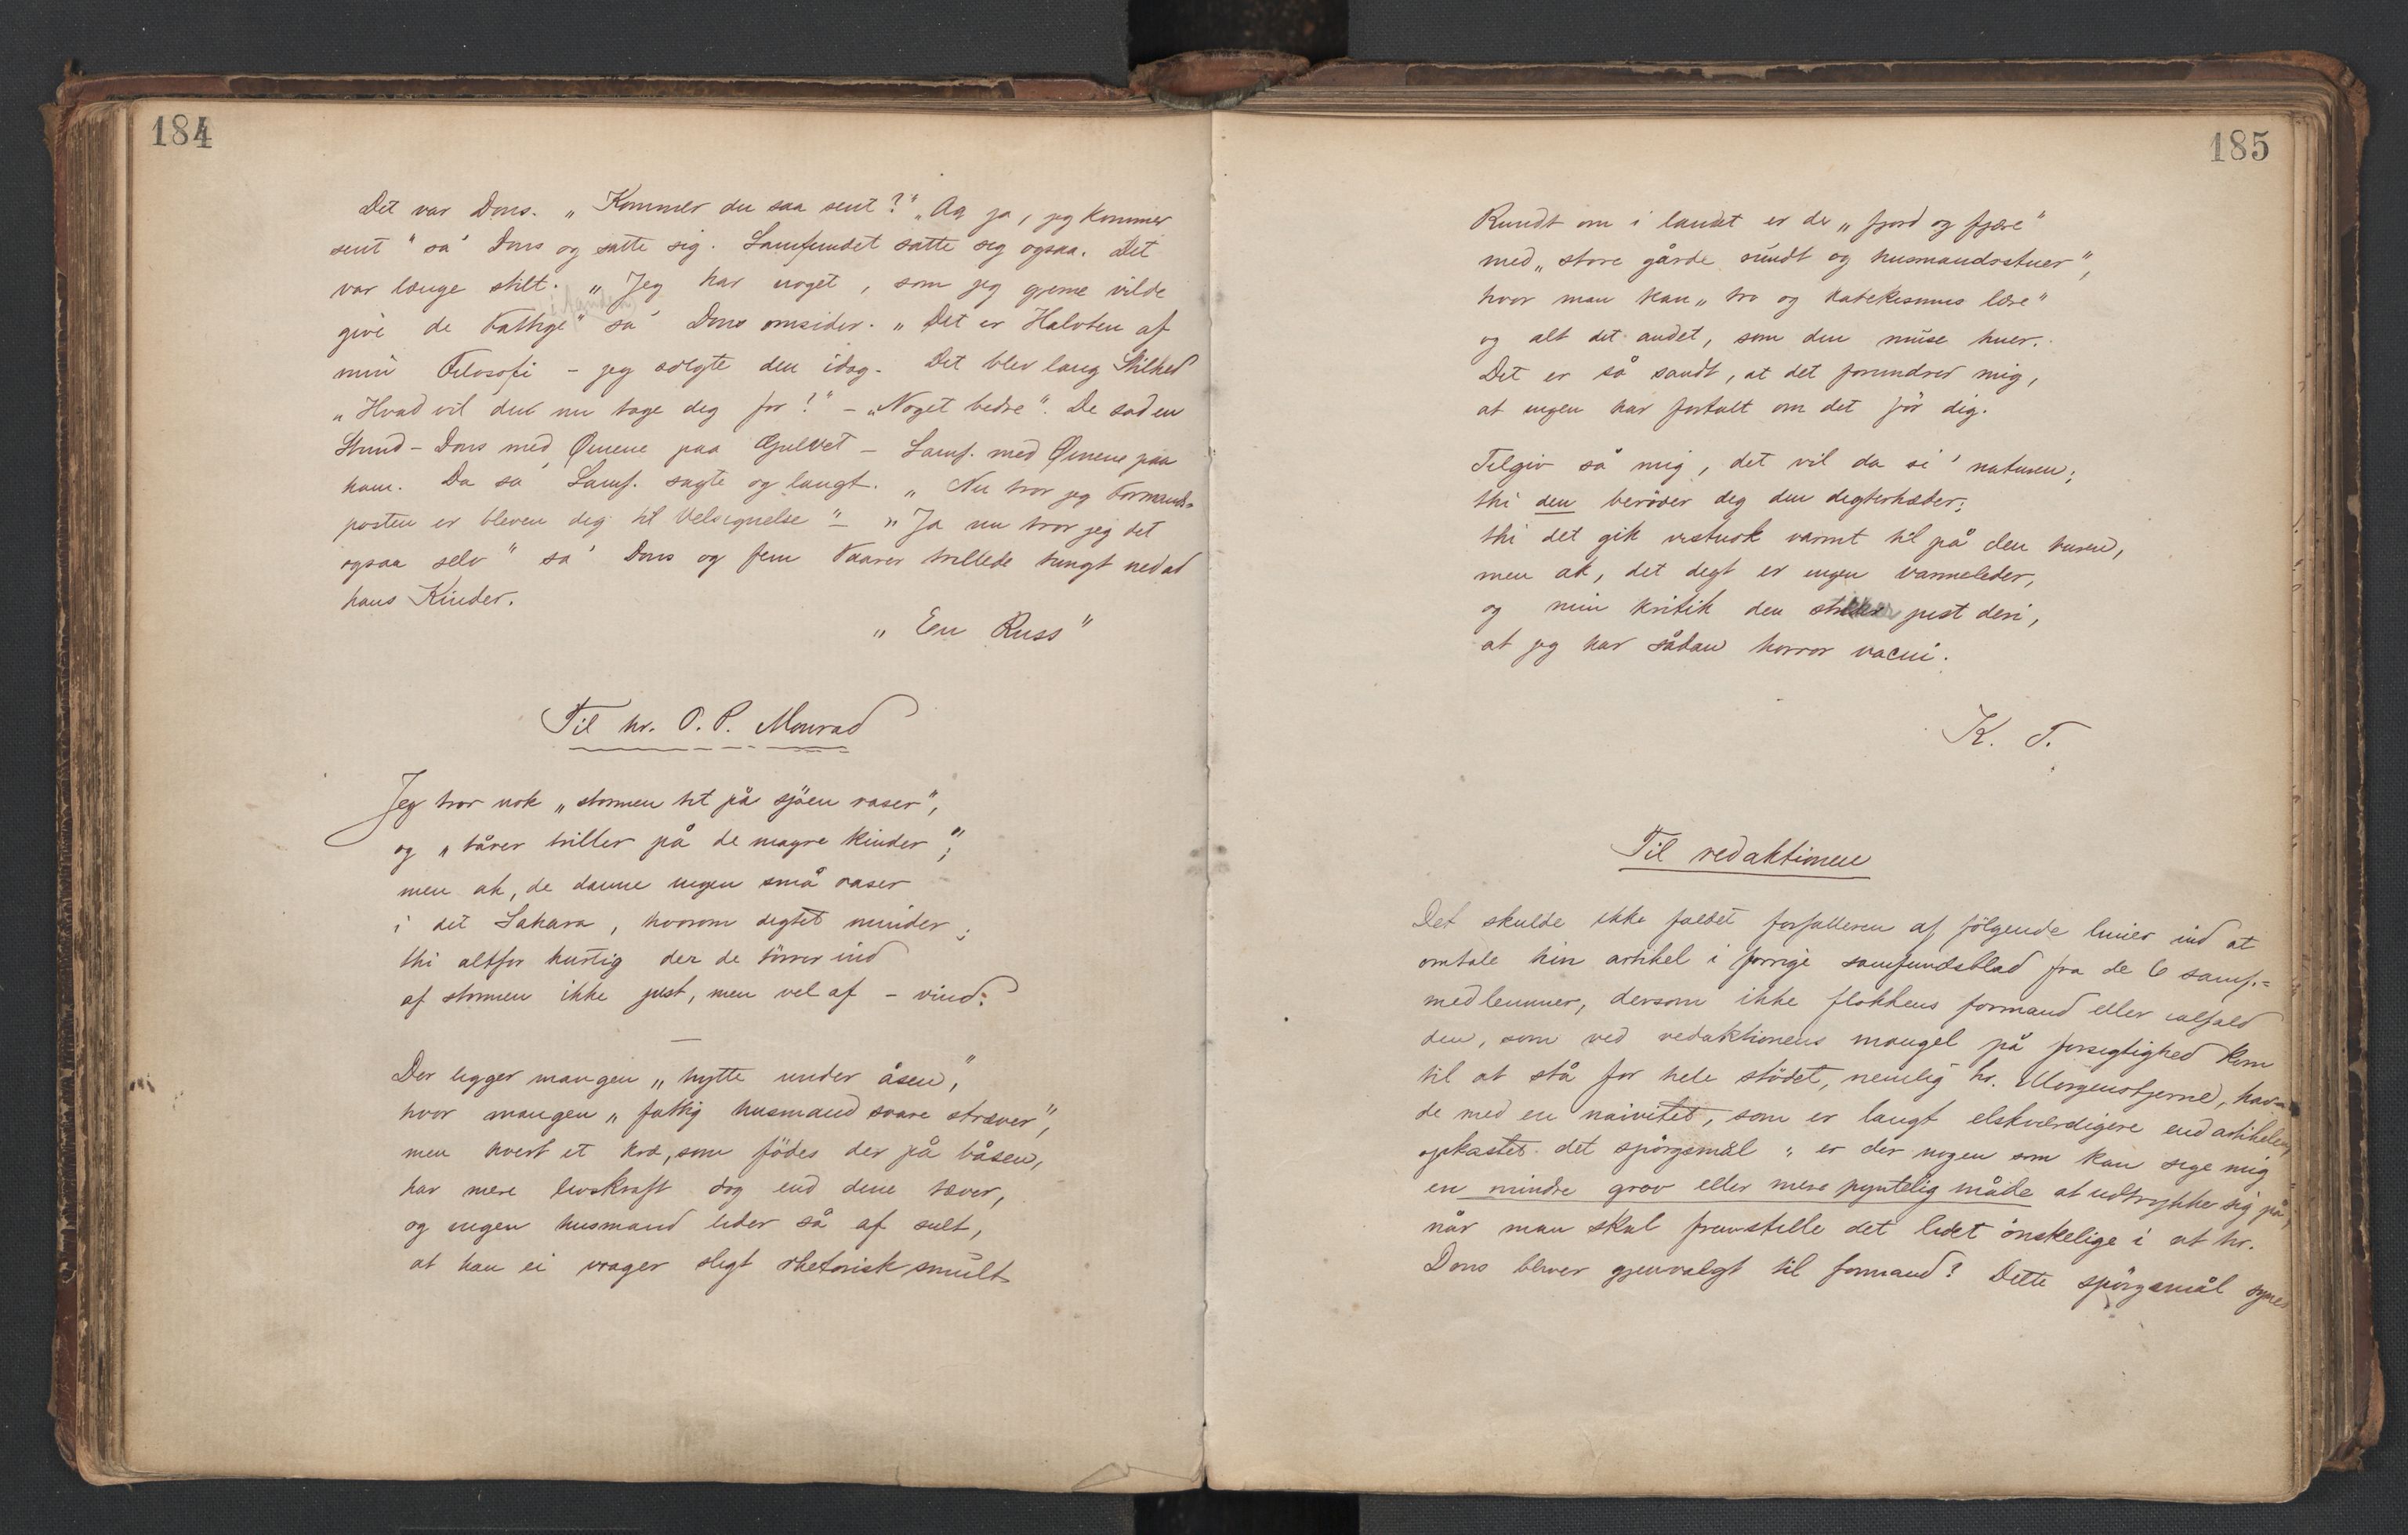 184
Det var Dons. „Kommer du saa sent?" „Aa ja, jeg kommer
sent" sa' Dons og satte sig. Samfundet satte seg ogsaa. Det
var længe stilt. „Jeg har noget, som jeg gjerne vilde
give de Fattige" sa' Dons omsider. „Det er Halvten af
min Filosofi – jeg solgte den idag. Det blev lang Stilhed
„Hvad vil du nu tage deg for!" – „Noget bedre". De sad en
Stund – Dons med Øinene paa Gulvet – Samf. med Øinene paa
ham. Da sa' Samf. sagte og langt. „Nu tror jeg Formands=
posten er bleven dig til Velsignelse" – „Ja nu tror jeg det
ogsaa selv" sa' Dons og fem Taarer trillede tungt nedad
hans Kinder.
„En Russ"
Til hr. O. P. Monrad
Jeg tror nok „stormen tit på sjöen raser",
og „tårer triller på de magre kinder";
men ak, de danne ingen små oaser
i det Sahara, hvorom degtet minder;
thi altfor hurtig der de törrer ind
af stormen ikke just, men vel af – vind.
–
Der ligger mangen „hytte under åsen",
hvor mangen „fattig husmand svare stræver",
men hvert et kræ, som födes der på båsen,
har mere livskraft dog end dine væver,
og ingen husmand lider så af sult,
at han ei vrager sligt rhetorisk smult
185
Rundt om i landet er der „fjord og fjære"
med „store gårde rundt og husmandsstuer",
hvor man kan „tro og katekismus lære"
og alt det andet, som din muse huer.
Det er så sandt, at det forundrer mig,
at ingen har fortalt om det för dig.
Tilgiv så mig, det vil da si' naturen;
thi den beröver deg den degterhæder;
thi det gik vistnok varmt til på den turen,
men ak, det degt er ingen varmeleder,
og min kritik den stikker just deri,
at jeg har sådan horror vacui.
K. T.
Til redaktionen
Det skulde ikke faldet forfatteren af fölgende linier ind at
omtale hin artikel i forrige samfundsblad fra de 6 samf.=
medlemmer, dersom ikke flokkens formand eller ialfald
den, som ved redaktionens mangel på forsigtighed kom
til at stå for hele stödet, nemlig hr. Morgenstjerne, hav=
de med en naivitet, som er langt elskværdigere end artikelen,
opkastet det spörgsmål „er der nogen som kan sige mig
en mindre grov eller mere pyntelig måde at udtrykke sig på,
når man skal fremstille det lidet önskelige i at hr.
Dons bliver gjenvalgt til formand? Dette spörgsmål synes